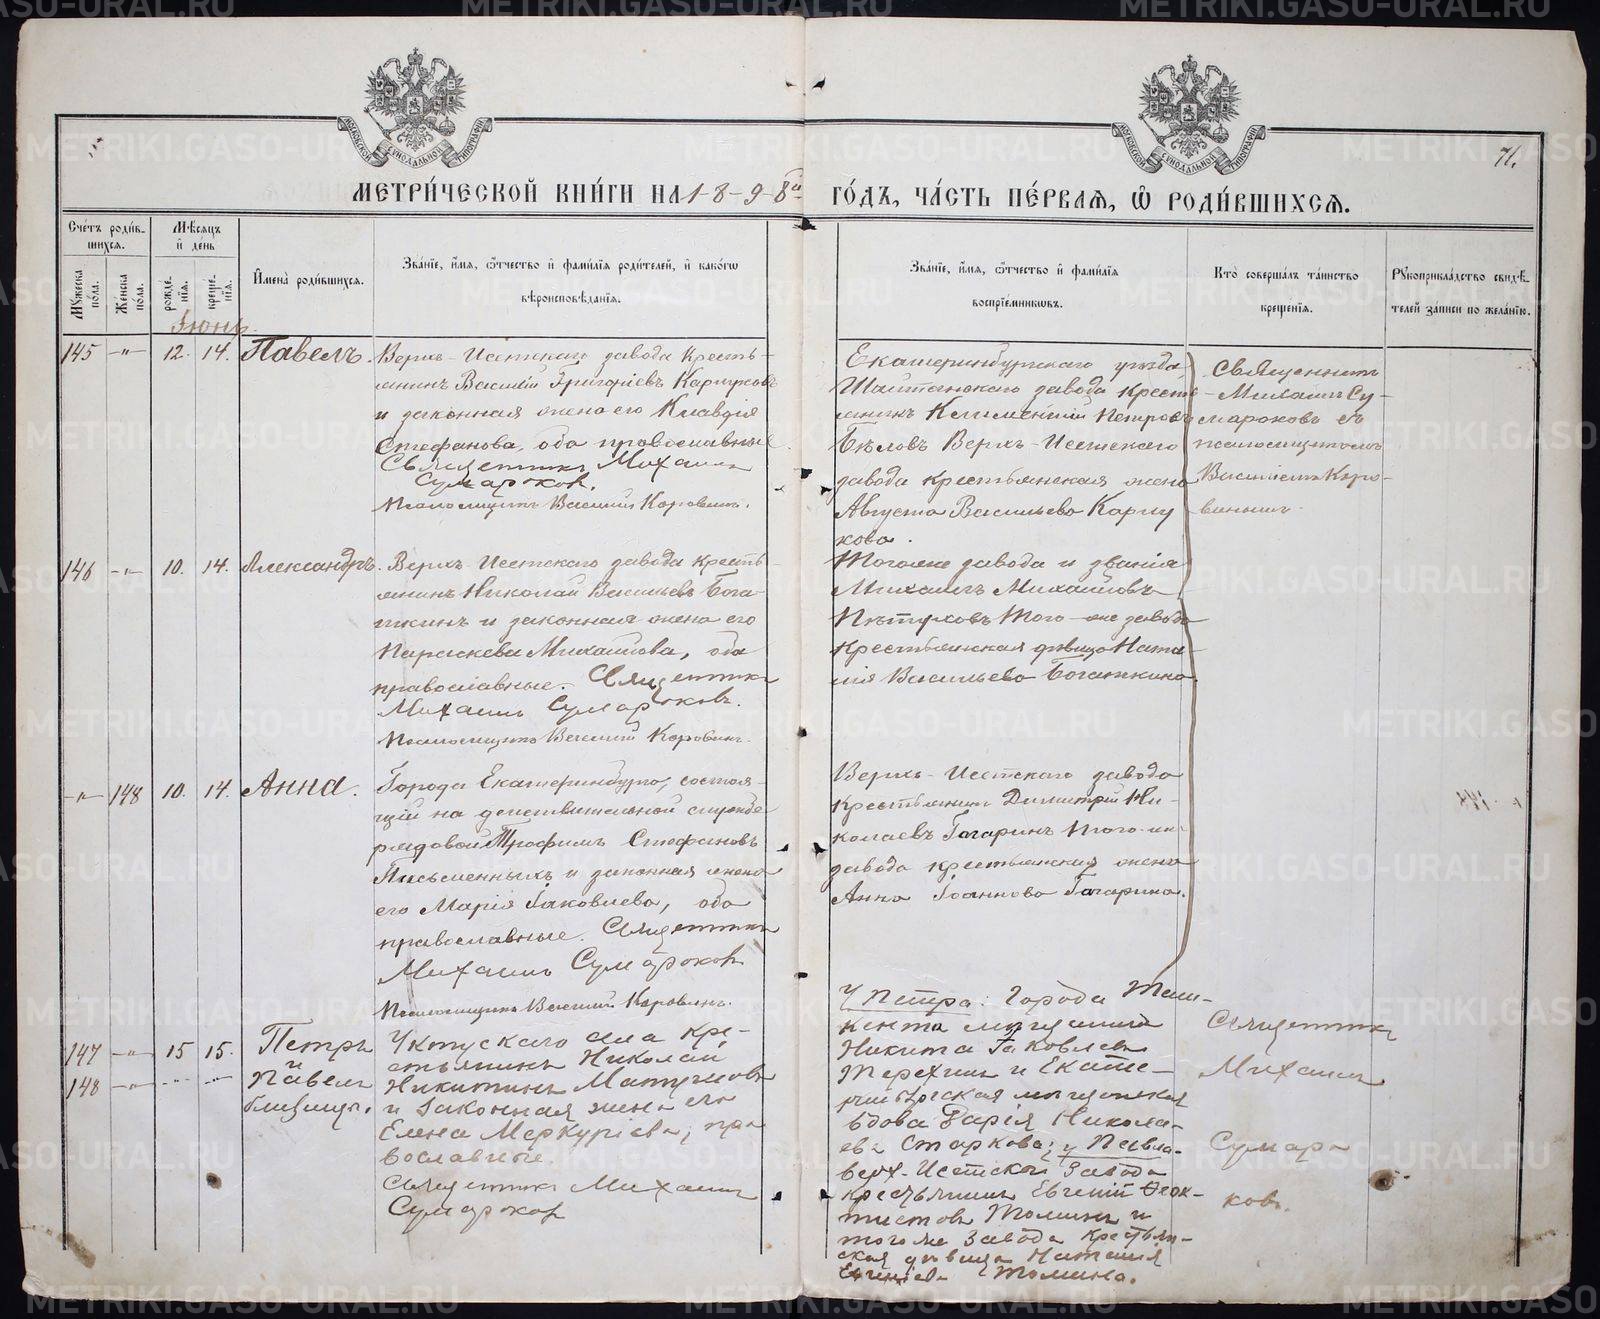 71.
МЕТРИ́ЧЕСКОЙ КНИ́ГИ НА 1-8-9-8й ГО́ДЪ, ЧА́СТЬ ПЕ́РВАѦ, Ѡ҆ РОДИ́ВШИХСѦ.
Сче́тъ роди́в-
шихсѧ.
Мꙋжеска по́ла.
Же́нска по́ла.
Мѣ́сѧцъ
и҆ де́нь
рожде́-
нїѧ.
креще́-
нїѧ.
И҆мена̀ роди́вшихсѧ.
Зва́нїе, и҆́мѧ, ѻ҆́тчество и҆ фами́лїѧ роди́телей, и҆ како́гѡ
вѣроисповѣ́данїѧ.
Зва́нїе, и҆́мѧ, ѻ҆́тчество и҆ фами́лїѧ
воспрїе́мникѡвъ.
Кто̀ соверша́лъ та́инство
креще́нїѧ.
Рꙋкоприкла́дство свидѣ́-
телей за́писи по жела́нїю.
Іюнь.
145 -"- 12. 14. Павелъ.
Верхъ-Исетскаго завода кресть-
янинъ Василій Григоріевъ Каргуковъ
и законная жена его Клавдія
Стефанова, оба православные.
Священникъ Михаилъ
Сумароков.
Псаломщикъ Василій Коровинъ.
Екатеринбургскаго уѣзда,
Шайтанскаго завода кресть-
янинъ Климентій Петровъ
Бѣловъ Верхъ-Исетскаго
завода крестьянская жена
Августа Васильева Каргу
кова.
Священникъ
Михаилъ Су-
мароковъ съ
псаломщикомъ
Василіемъ Коро-
винымъ.
146 -"- 10. 14. Александръ.
Верхъ-Исетскаго завода кресть-
янинъ Николай Васильевъ Бога-
ткинъ и законная жена его
Параскева Михайлова, оба
православные. Священникъ
Михаилъ Сумароковъ.
Псаломщикъ Василій Коровинъ.
Тогоже завода и званія
Михаилъ Михайловъ
Пѣтуховъ того-же завода
крестьянская дѣвица Ната-
лія Васильева Богаткина.
-"- 148 10. 14. Анна.
Города Екатеринбурга, состоя-
щій на действительной службе
рядовой Трофимъ Стефановъ
Письменныхъ и законная жена
его Марія Іаковлева, оба
православные. Священникъ
Михаилъ Сумароков
Псаломщикъ Василій Коровинъ.
Верхъ-Исетскаго завода
крестьянинъ Димитрій Ни-
колаевъ Гагаринъ того-же
завода крестьянская жена
Анна Іоаннова Гагарина.
147 -"- 15 15. Петръ
и
148 -"- Павелъ
близнцы.
Уктускаго села кре-
стьянинъ Николай
Никитинъ Матушновъ
и законная жена его
Елена Меркуріева, пра
вославные.
Священникъ Михаилъ
Сумароков
У Петра: Города Таш-
кента мещанинъ
Никита Іаковлев
Терехинъ и Екате-
ринбургская мещанская
вдова Дарія Никола-
ева Старкова; у Павла-
верх-Исетскаго завода
крестьянинъ Евгеній Феок-
тистовъ Томинъ и
тогоже завода крестьян-
ская дѣвица Наталія
Евгеніева Томина.
Священникъ
Михаилъ
Сумаро
ковъ.
METRIKI.GASO-URAL.RU